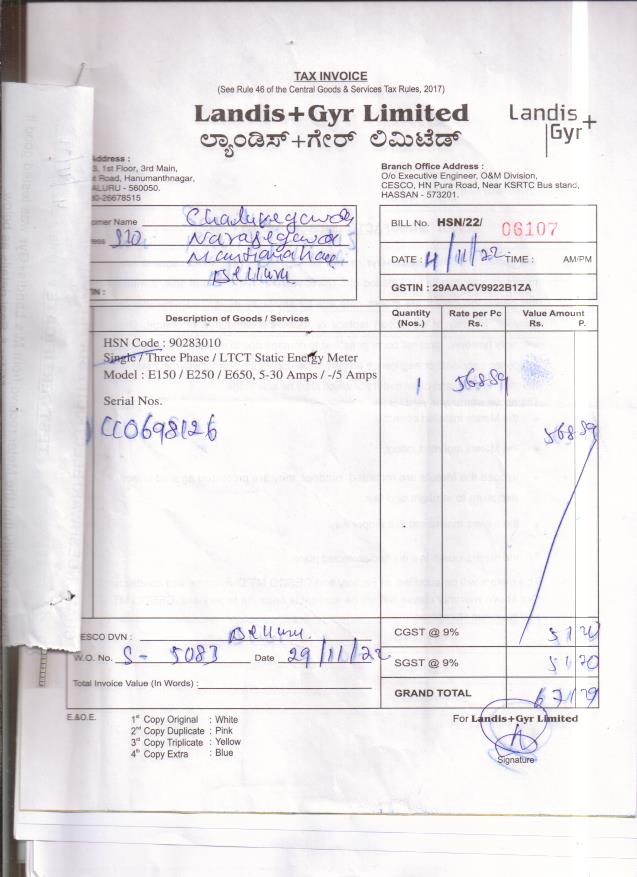 TAX INVOICE
(See Rule 46 of the Central Goods & Services Tax Rules, 2017)
Landis+Gyr Limited
ಲ್ಯಾಂಡಿಸ್+ಗೇರ್ ಲಿಮಿಟೆಡ್
Landis+
Gyr
Address :
3, 1st Floor, 3rd Main,
Road, Hanumanthnagar,
ALURU - 560050.
80-26678515
Branch Office Address :
O/o Executive Engineer, O&M Division,
CESCO, HN Pura Road, Near KSRTC Bus stand,
HASSAN - 573201.
omer Name
ess
Belluru
IN :
BILL No. HSN/22/ 06107
DATE : 4/11/22 TIME : AM/PM
GSTIN : 29AAACV9922B1ZA
Description of Goods / Services Quantity (Nos.) Rate per Pc Rs. Value Amount Rs. P.
HSN Code : 90283010
Single / Three Phase / LTCT Static Energy Meter
Model : E150 / E250 / E650, 5-30 Amps / -/5 Amps
1 56889
Serial Nos.
CC0698126
56889
ESCO DVN : Belluru.
W.O. No. S- 5083 Date 29/11/22
Total Invoice Value (In Words) :
CGST @ 9%
SGST @ 9% 5120
GRAND TOTAL 67129
E.&O.E.
1st Copy Original : White
2nd Copy Duplicate : Pink
3rd Copy Triplicate : Yellow
4th Copy Extra : Blue
For Landis+Gyr Limited
Signature